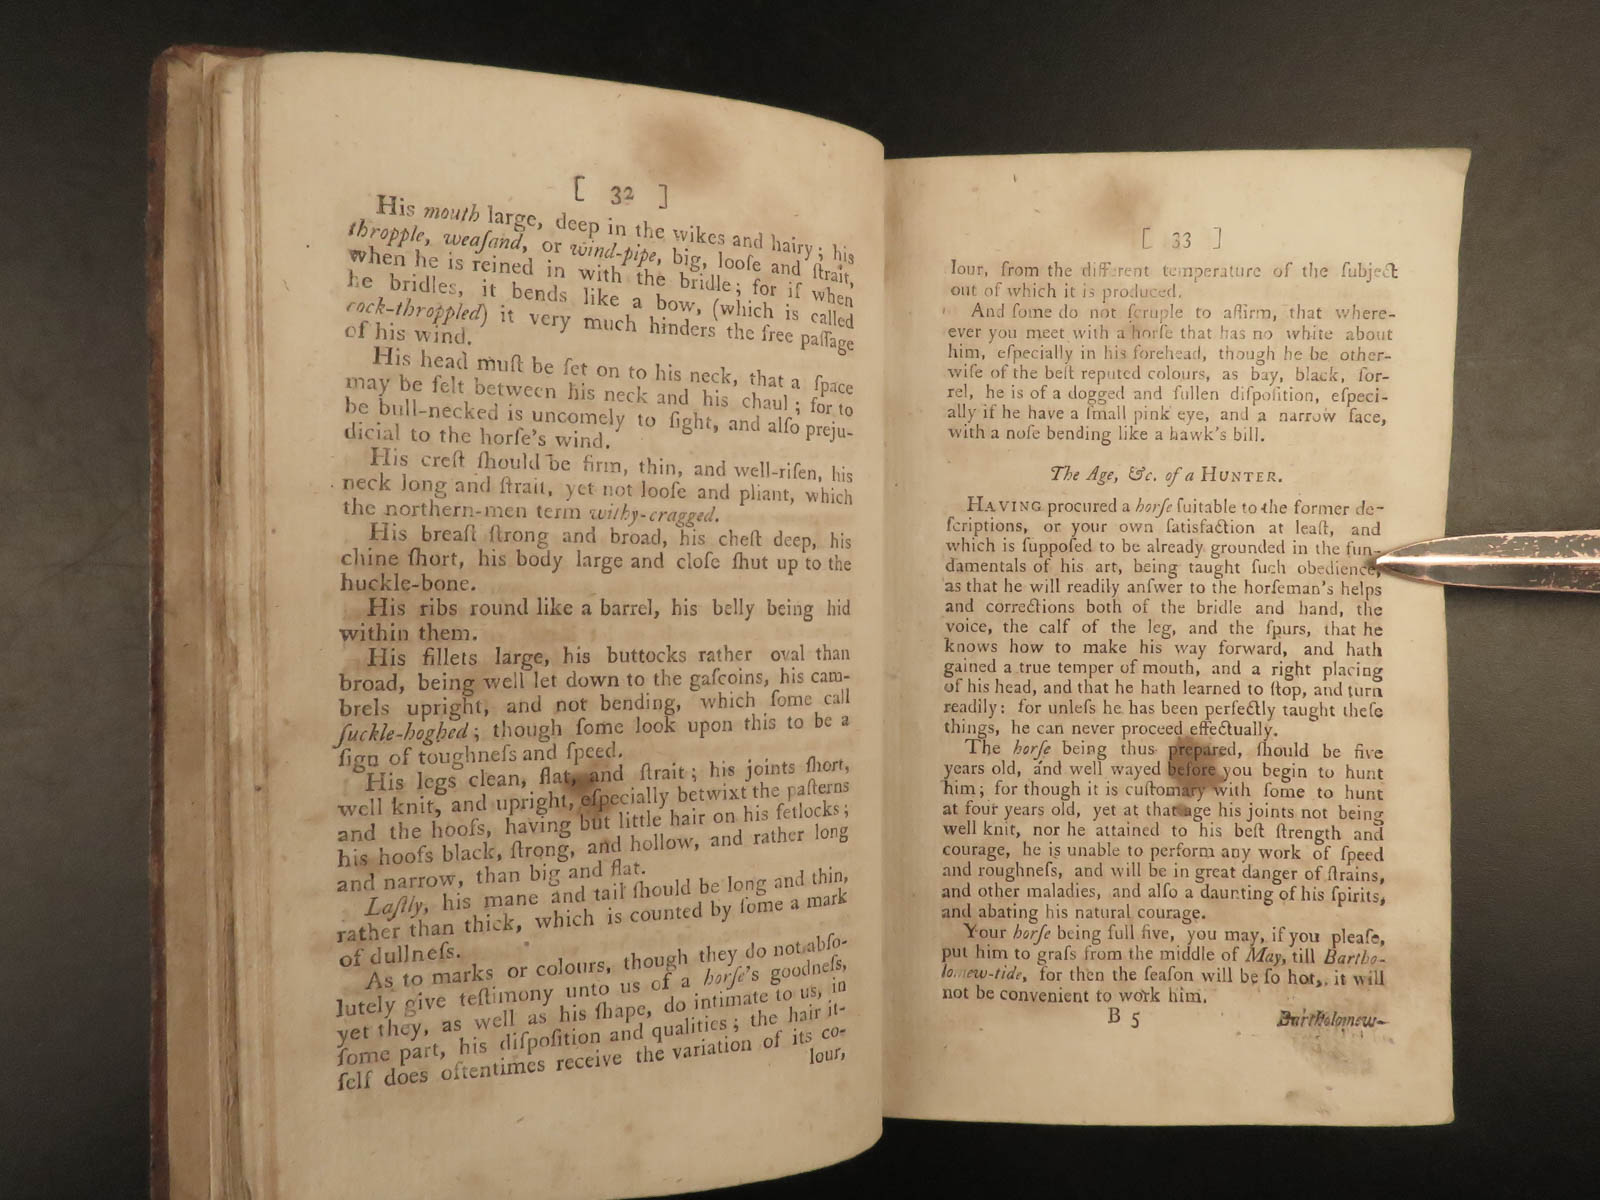 [ 32 ]
His mouth large, deep in the wikes and hairy; his
thropple, weaſand, or wind-pipe, big, looſe and ſtrait,
when he is reined in with the bridle; for if when
he bridles, it bends like a bow, (which is called
cock-throppled) it very much hinders the free paſſage
of his wind.
His head muſt be ſet on to his neck, that a ſpace
may be felt between his neck and his chaul; for to
be bull-necked is uncomely to ſight, and alſo preju-
dicial to the horſe's wind.
His creſt ſhould be firm, thin, and well-riſen, his
neck long and ſtrait, yet not looſe and pliant, which
the northern-men term withy-cragged.
His breaſt ſtrong and broad, his cheſt deep, his
chine ſhort, his body large and cloſe ſhut up to the
huckle-bone.
His ribs round like a barrel, his belly being hid
within them.
His fillets large, his buttocks rather oval than
broad, being well let down to the gaſcoins, his cam-
brels upright, and not bending, which ſome call
ſuckle-hoghed; though ſome look upon this to be a
ſign of toughneſs and ſpeed.
His legs clean, flat, and ſtrait; his joints ſhort,
well knit, and upright, eſpecially betwixt the paſterns
and the hoofs, having but little hair on his fetlocks;
his hoofs black, ſtrong, and hollow, and rather long
and narrow, than big and flat.
Laſtly, his mane and tail ſhould be long and thin,
rather than thick, which is counted by ſome a mark
of dullneſs.
As to marks or colours, though they do not abſo-
lutely give teſtimony unto us of a horſe's goodneſs,
yet they, as well as his ſhape, do intimate to us, in
ſome part, his diſpoſition and qualities; the hair it-
ſelf does oftentimes receive the variation of its co-
lour,
[ 33 ]
lour, from the different temperature of the ſubject
out of which it is produced.
And ſome do not ſcruple to affirm, that where-
ever you meet with a horſe that has no white about
him, eſpecially in his forehead, though he be other-
wiſe of the beſt reputed colours, as bay, black, ſor-
rel, he is of a dogged and ſullen diſpoſition, eſpeci-
ally if he have a ſmall pink eye, and a narrow face,
with a noſe bending like a hawk's bill.
The Age, &c. of a HUNTER.
HAVING procured a horſe ſuitable to the former de-
ſcriptions, or your own ſatisfaction at leaſt, and
which is ſuppoſed to be already grounded in the fun-
damentals of his art, being taught ſuch obedience,
as that he will readily anſwer to the horſeman's helps
and corrections both of the bridle and hand, the
voice, the calf of the leg, and the ſpurs, that he
knows how to make his way forward, and hath
gained a true temper of mouth, and a right placing
of his head, and that he hath learned to ſtop, and turn
readily: for unleſs he has been perfectly taught theſe
things, he can never proceed effectually.
The horſe being thus prepared, ſhould be five
years old, and well wayed before you begin to hunt
him; for though it is cuſtomary with ſome to hunt
at four years old, yet at that age his joints not being
well knit, nor he attained to his beſt ſtrength and
courage, he is unable to perform any work of ſpeed
and roughneſs, and will be in great danger of ſtrains,
and other maladies, and alſo a daunting of his ſpirits,
and abating his natural courage.
Your horſe being full five, you may, if you pleaſe,
put him to graſs from the middle of May, till Bartho-
lomew-tide, for then the ſeaſon will be ſo hot, it will
not be convenient to work him.
B 5
Bartholomew-